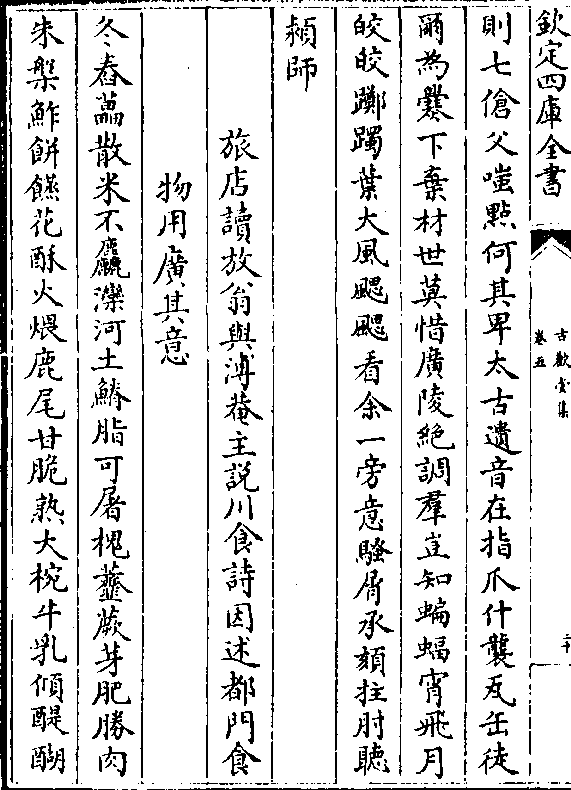 欽定四庫全書
古歡堂集
卷五
二十
則七傖父嗤點何其卑太古遺音在指爪什襲瓦缶徒
爾為爨下棄材世莫惜廣陵絶調羣豈知蝙蝠宵飛月
皎皎躑躅葉大風颸颸看余一旁意騷屑承頦拄肘聽
潁師
旅店讀放翁與溥菴主説川食詩因述都門食
物用廣其意
冬舂藟散米不麤灤河土鱐脂可屠槐虀蕨芽肥勝肉
朱槃鮓餅饊花酥火煨鹿尾甘脆熟大椀牛乳傾醍醐